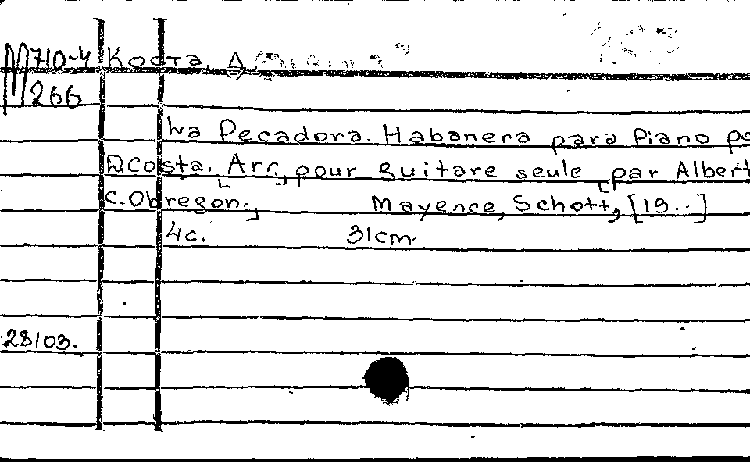 М 710-4 Коста, Д.
266
La Pecadora. Habanera para Piano po
D. Costa. Arr. pour guitare seule [par Albert
C. Obregon.], Mayence, Schott, [19..]
4с. 31cm
28103.